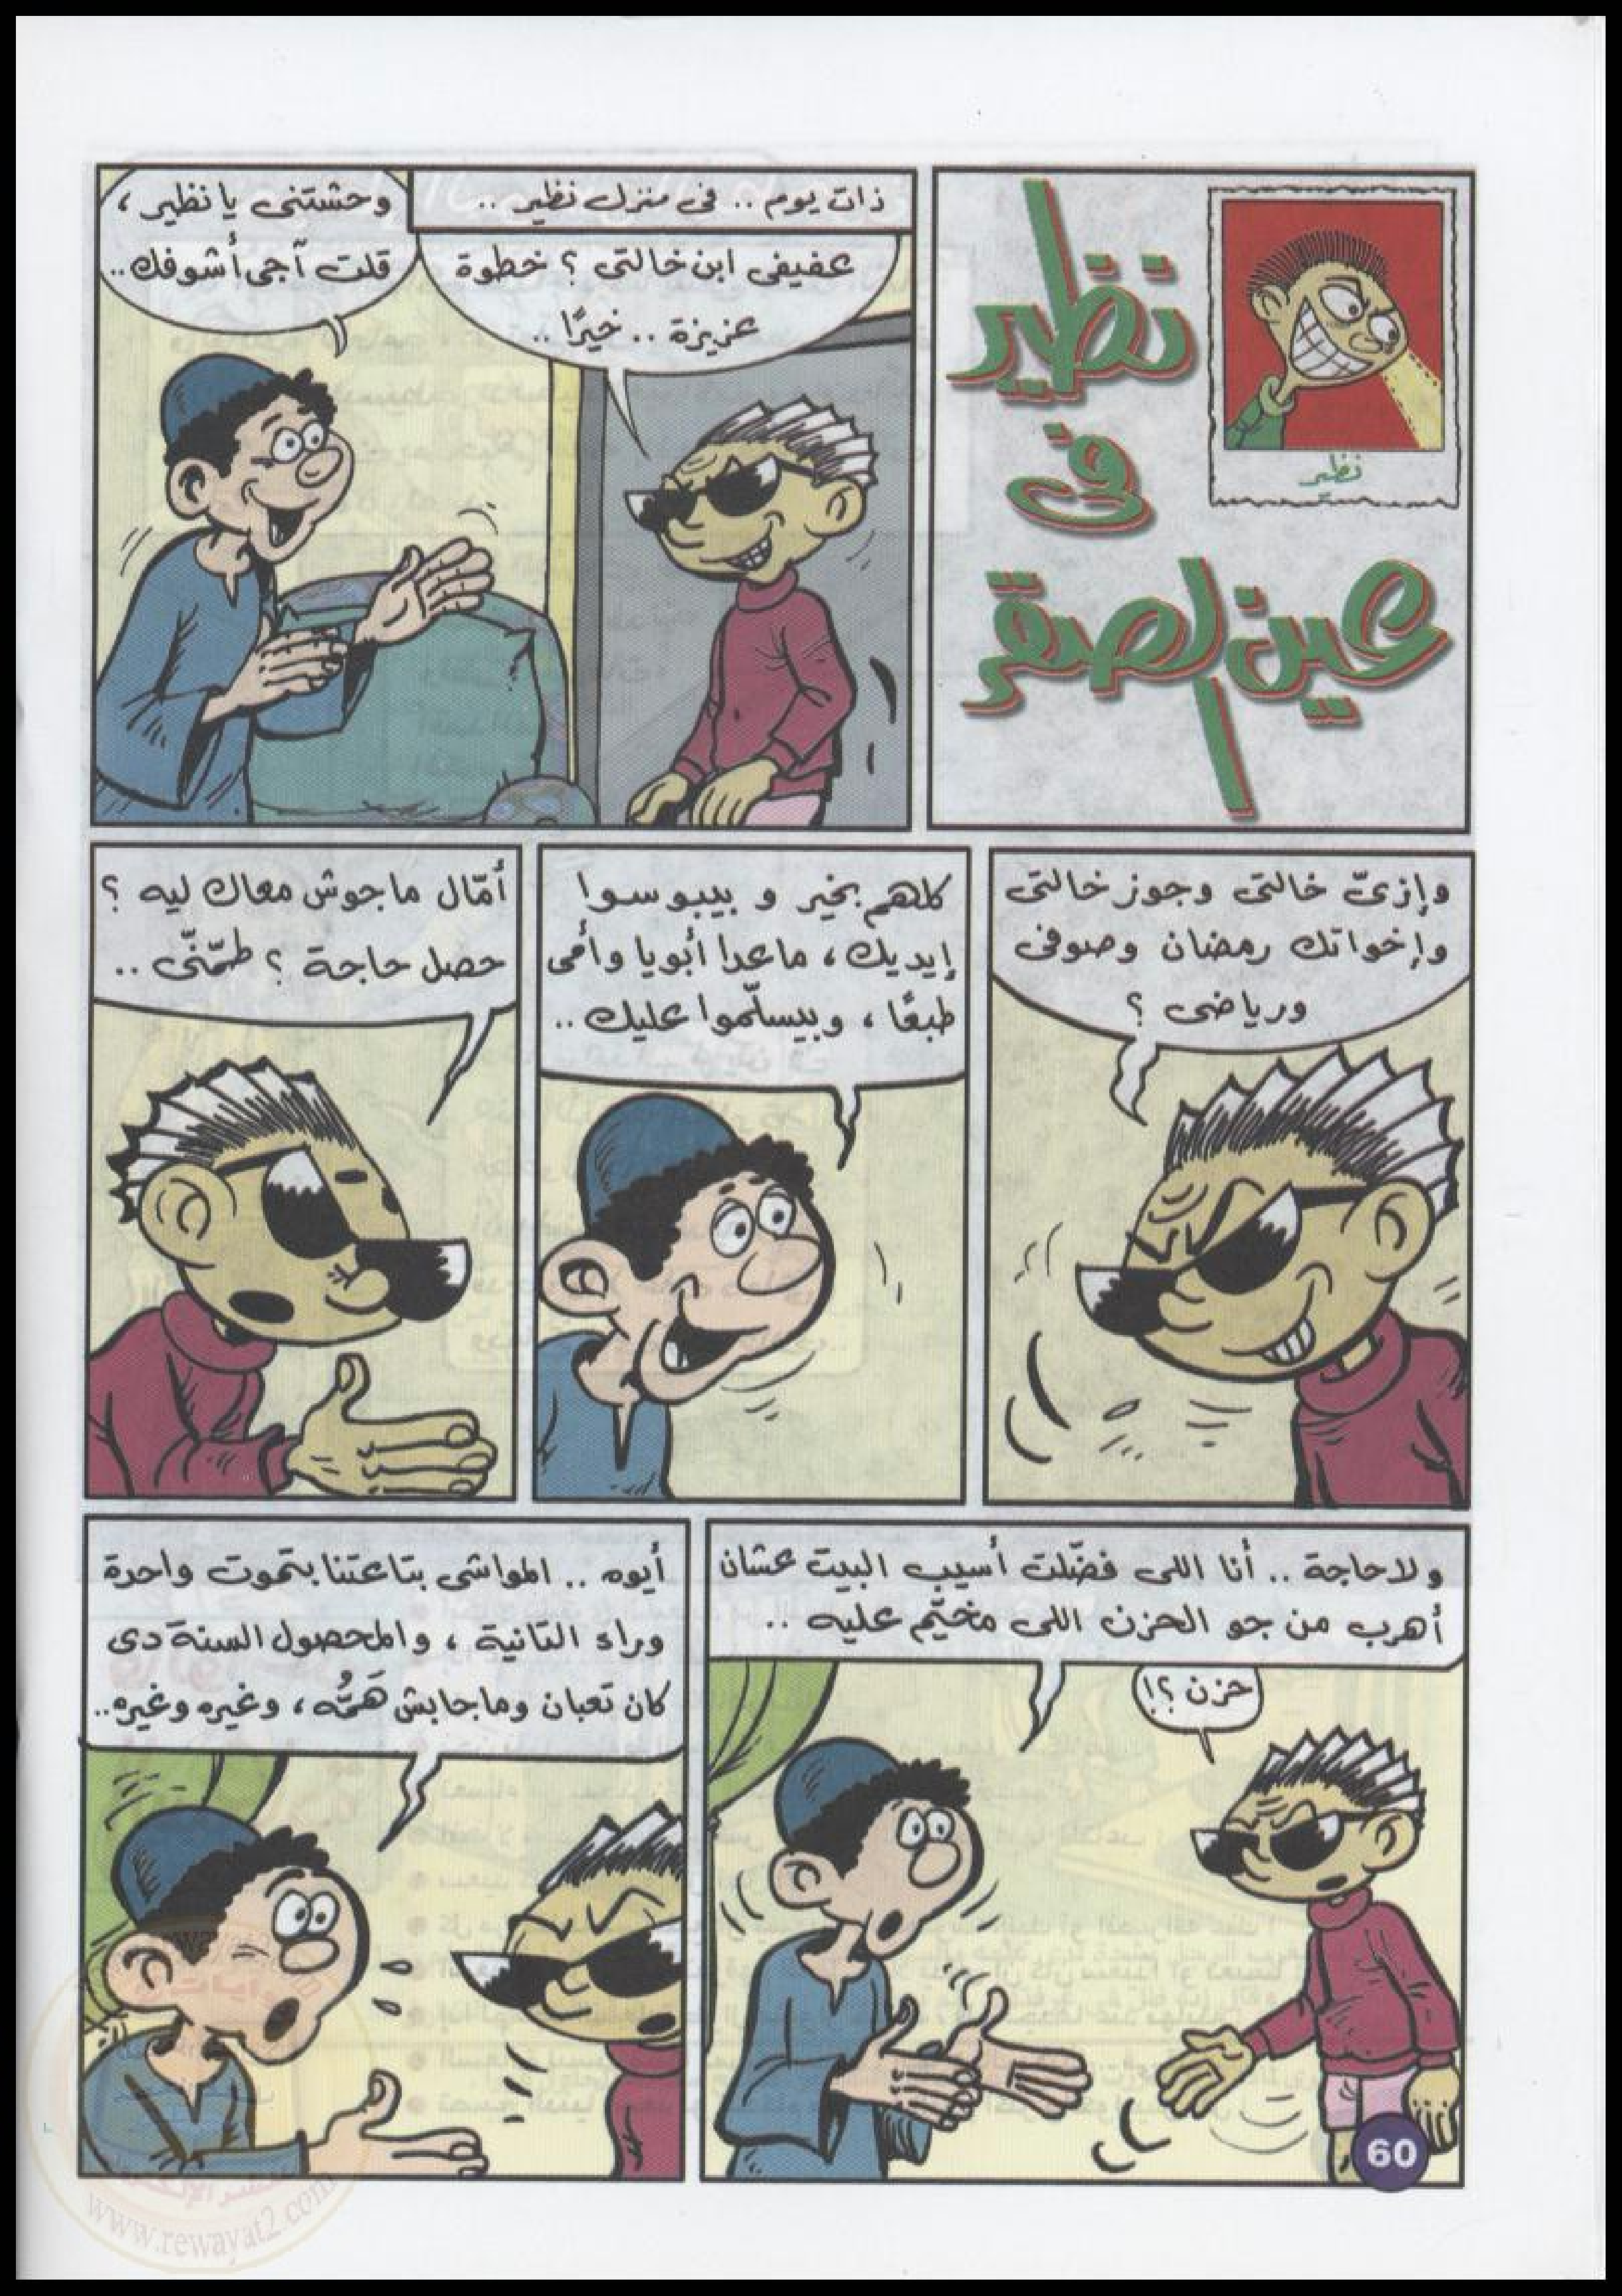 نظير
نظير
فى
عين الصقر
ذات يوم .. فى منزل نظير ..
عفيفى ابن خالتى ؟ خطوة
عزيزة .. خيرًا ..
وحشتنى يا نظير ،
قلت آجى أشوفك ..
وإزىّ خالتى وجوز خالتى
وإخواتك رمضان وصوفى
ورياضى ؟
كلهم بخير و بيبوسوا
إيديك ، ماعدا أبويا وأمى
طبعًا ، وبيسلّموا عليك ..
أمّال ماجوش معاك ليه ؟
حصل حاجة ؟ طمّنّى ..
ولا حاجة .. أنا اللى فضّلت أسيب البيت عشان
أهرب من جو الحزن اللى مخيّم عليه ..
حزن ؟!
أيوه .. المواشى بتاعتنا بتموت واحدة
وراء التانية ، والمحصول السنة دى
كان تعبان وماجابش هَمُّه ، وغيره وغيره..
60
www.rewayat2.com